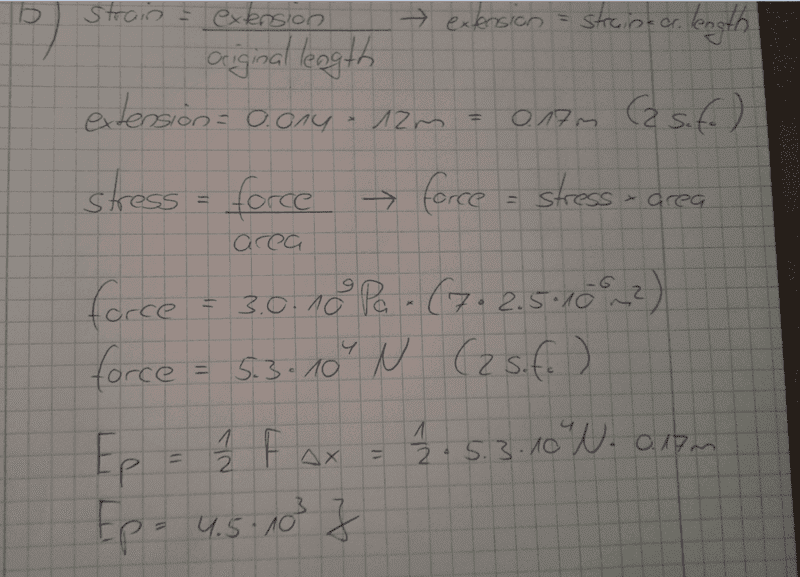 b) strain = extension / original length → extension = strain · or. length
extension = 0.014 · 12m = 0.17m (2 s.f.)
stress = force / area → force = stress · area
force = 3.0 · 10⁹ Pa · (7 · 2.5 · 10⁻⁶ m²)
force = 5.3 · 10⁴ N (2 s.f.)
Ep = 1/2 F Δx = 1/2 · 5.3 · 10⁴ N · 0.17m
Ep = 4.5 · 10³ J